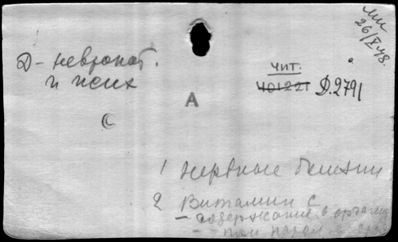 мм
26/X 48.
Д - невропат.
и псих
чит.
401221 Д.2791
А
С
1 Нервные болезни
2 Витамин С
- содержание в органи
- при